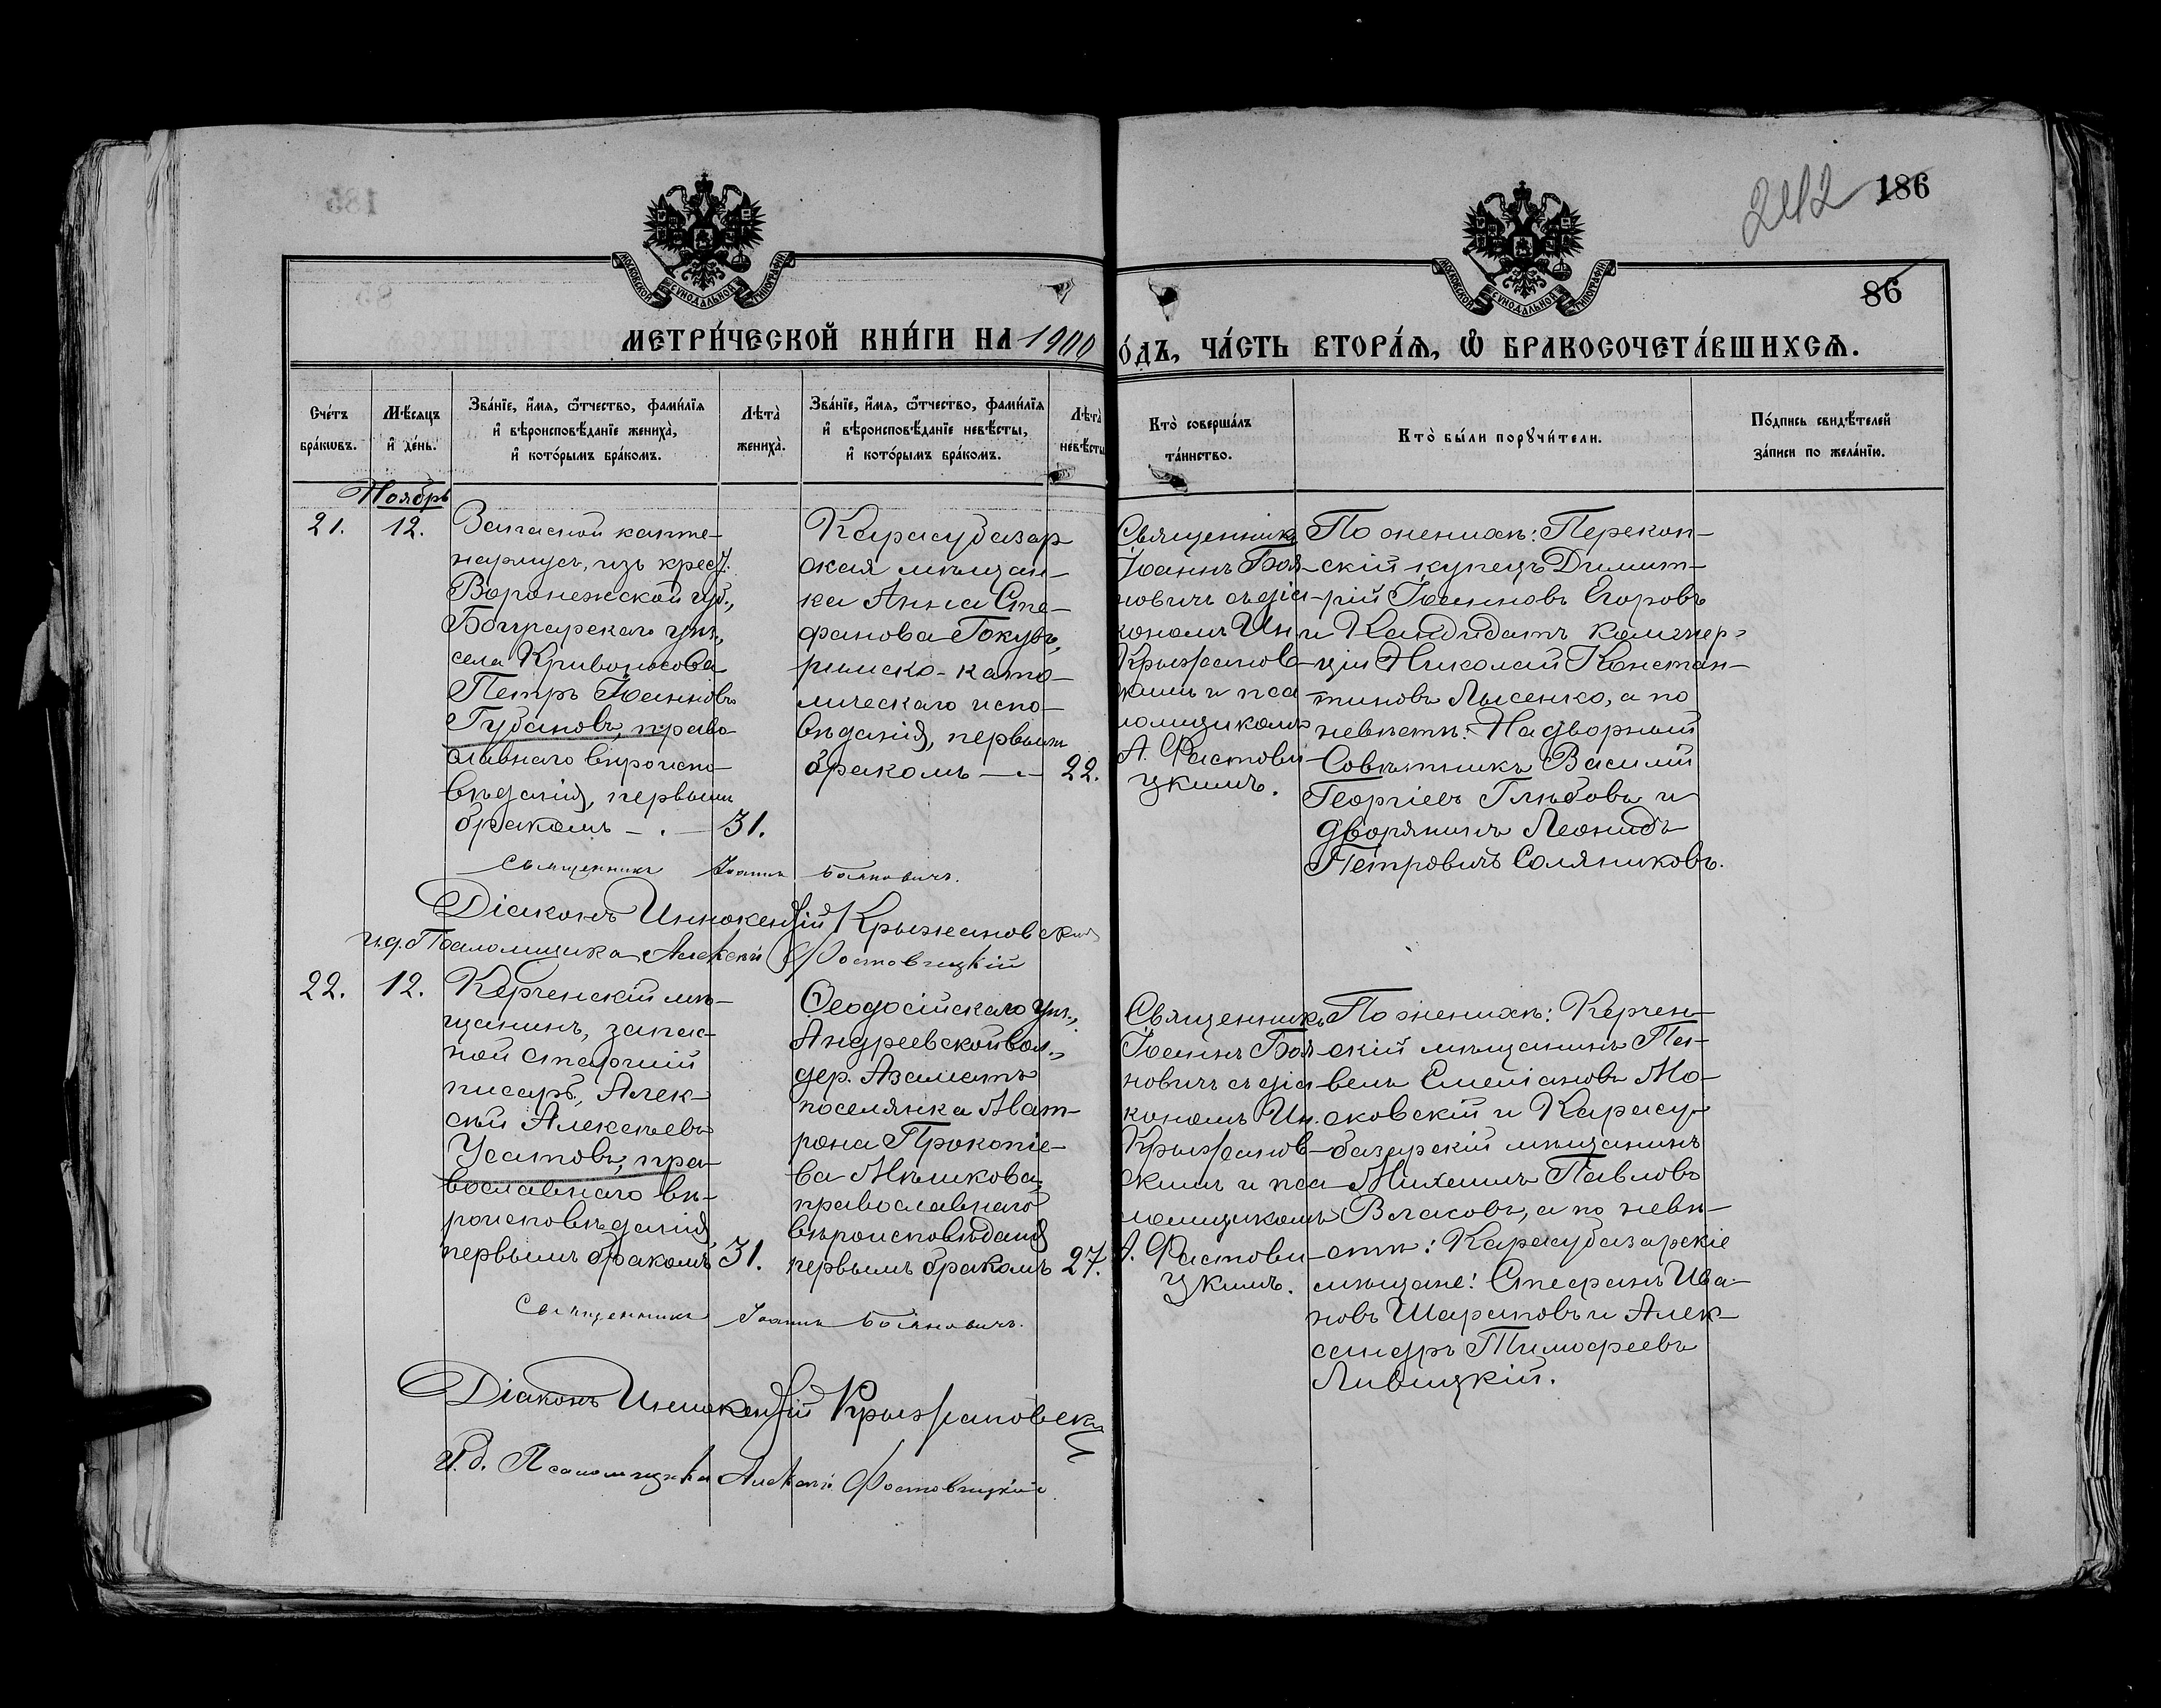 242 186
86
МОСКОВСКОЙ СѴНОДАЛЬНОЙ ТИПОГРАФІИ
МОСКОВСКОЙ СѴНОДАЛЬНОЙ ТИПОГРАФІИ
МЕТРИ́ЧЕСКОЙ КНИ́ГИ НА 1900
О́ДЪ, ЧА́СТЬ ВТОРА́Ѧ, Ѽ БРАКОСОЧЕТА́ВШИХСѦ.
Сче́тъ
бра́кѡвъ.
Мѣ́сѧцъ
и҆ де́нь.
Зва́нїе, и҆́мѧ, ѻ҆́тчество, фами́лїѧ
и҆ вѣроисповѣ́данїе жениха̀,
и҆ кото́рымъ бра́комъ.
Лѣта̀
жениха̀.
Зва́нїе, и҆́мѧ, ѻ҆́тчество, фами́лїѧ
и҆ вѣроисповѣ́данїе невѣ́сты,
и҆ кото́рымъ бра́комъ.
Лѣта̀
невѣ́сты
Кто̀ соверша́лъ
та́инство.
Кто̀ бы́ли порꙋчи́тели.
По́дпись свидѣ́телей
за́писи по жела́нїю.
Ноябрь
21.
12.
Запасной капте-
нармусъ, изъ крест.
Воронежской губ.,
Богучарскаго уѣз.,
села Кривоносова
Петръ Іоанновъ
Губановъ, право-
славнаго вѣроиспо-
вѣданія, первымъ
бракомъ — . — 31.
Карасубазар
ская мѣщан-
ка Анна Сте-
фанова Гокувъ,
римско-като-
лическаго испо-
вѣданія, первымъ
бракомъ — 22.
Священникъ
Іоаннъ Боя-
новичъ съ діа-
кономъ Ин.
Крыжанов-
скимъ и пса-
ломщикомъ
А. Фастови-
цкимъ.
По женихѣ: Перекоп-
скій купецъ Димит-
рій Іоанновъ Егоровъ
и Кандидатъ коммер-
ціи Николай Констан-
тиновъ Лысенко, а по
невѣстѣ: Надворный
Совѣтникъ Василій
Георгіевъ Глѣбовъ и
дворянинъ Леонидъ
Петровичъ Соляниковъ.
Священникъ Іоаннъ Бояновичъ.
Діаконъ Иннокентій Крыжановскій
И. д. Псаломщика Алексѣй Фастовицкій
22.
12.
Керченскій мѣ-
щанинъ, запас-
ной старшій
писарь, Алек-
сѣй Алексѣевъ
Усатовъ, пра-
вославнаго вѣ-
роисповѣданія,
первымъ бракомъ 31.
Ѳеодосійскаго уѣз.,
Андреевской вол.,
дер. Азаматъ
поселянка Мат-
рона Прокопіе-
ва Мѣшкова,
православнаго
вѣроисповѣданія
первымъ бракомъ 27.
Священникъ
Іоаннъ Боя-
новичъ съ діа-
кономъ Ин.
Крыжанов-
скимъ и пса-
ломщикомъ
А. Фастови-
цкимъ.
По женихѣ: Керчен-
скій мѣщанинъ Па-
велъ Емеліановъ Мо-
сковскій и Карасу-
базарскій мѣщанинъ
Михаилъ Павловъ
Власовъ, а по невѣ-
стѣ: Карасубазарскіе
мѣщане: Стефанъ Ива-
новъ Шараповъ и Алек-
сандръ Тимофеевъ
Ливицкій.
Священникъ Іоаннъ Бояновичъ.
Діаконъ Иннокентій Крыжановскій
И. д. Псаломщика Алексѣй Фастовицкій